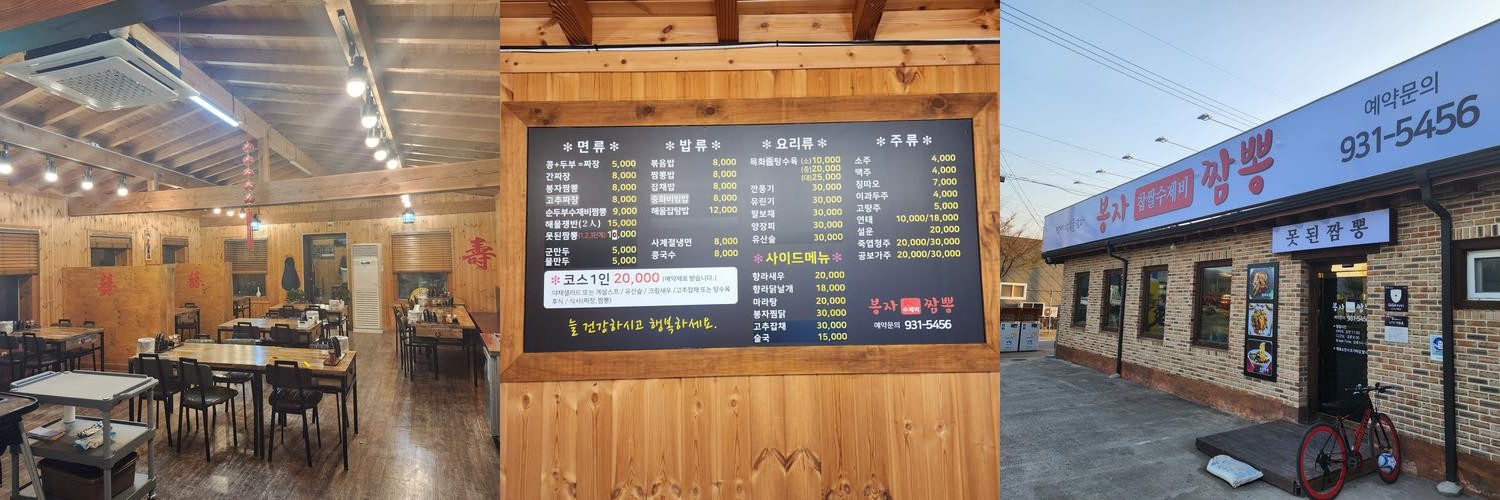 囍
囍
壽
✻면류✻
콩+두부=짜장 5,000
간짜장 8,000
봉자짬뽕 8,000
고추짜장 8,000
순두부수제비짬뽕 9,000
해물쟁반(2人) 15,000
못된짬뽕(1,2,3단계) 10,000
군만두 5,000
물만두 5,000
✻밥류✻
볶음밥 8,000
짬뽕밥 8,000
잡채밥 8,000
중화비빔밥 8,000
해물잡탕밥 12,000
사계절냉면 8,000
콩국수 8,000
✻요리류✻
목화솜탕수육 (소)10,000
(중)20,000
(대)25,000
깐풍기 30,000
유린기 30,000
깔보채 30,000
양장피 30,000
유산슬 30,000
✻사이드메뉴✻
향라새우 20,000
향라닭날개 18,000
마라탕 20,000
봉자찜닭 30,000
고추잡채 30,000
술국 15,000
✻주류✻
소주 4,000
맥주 4,000
칭따오 7,000
이과두주 4,000
고량주 5,000
연태 10,000/18,000
설운 20,000
죽엽청주 20,000/30,000
공보가주 20,000/30,000
✻코스1인 20,000 (예약제로 받습니다.)
야채샐러드 또는 계절스프 / 유산슬 / 크림새우 / 고추잡채 또는 탕수육
후식 / 식사(짜장,짬뽕)
늘 건강하시고 행복하세요.
봉자 수제비 짬뽕
예약문의 931-5456
봉자 찹쌀수제비 짬뽕
예약문의
931-5456
못된짬뽕